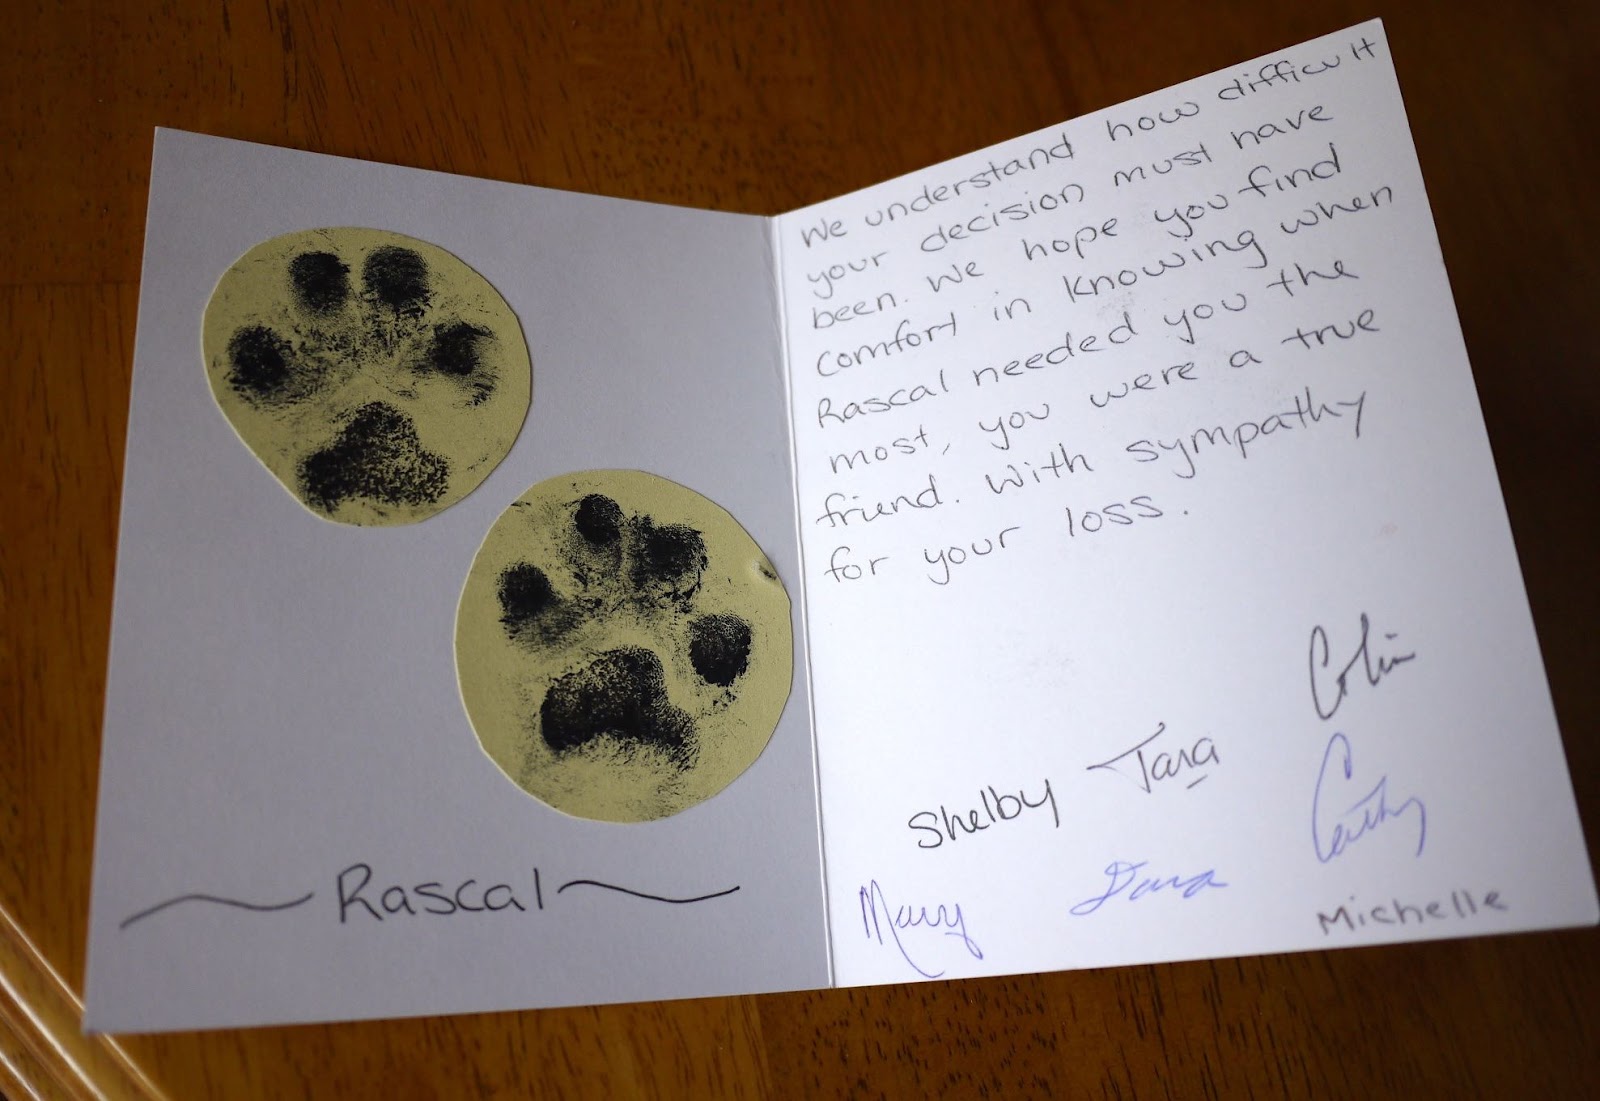 Rascal
We understand how difficult
your decision must have
been. We hope you find
comfort in knowing when
Rascal needed you the
most, you were a true
friend. With sympathy
for your loss.
Colin
Shelby Tara
Cathy
Mary Dara
Michelle